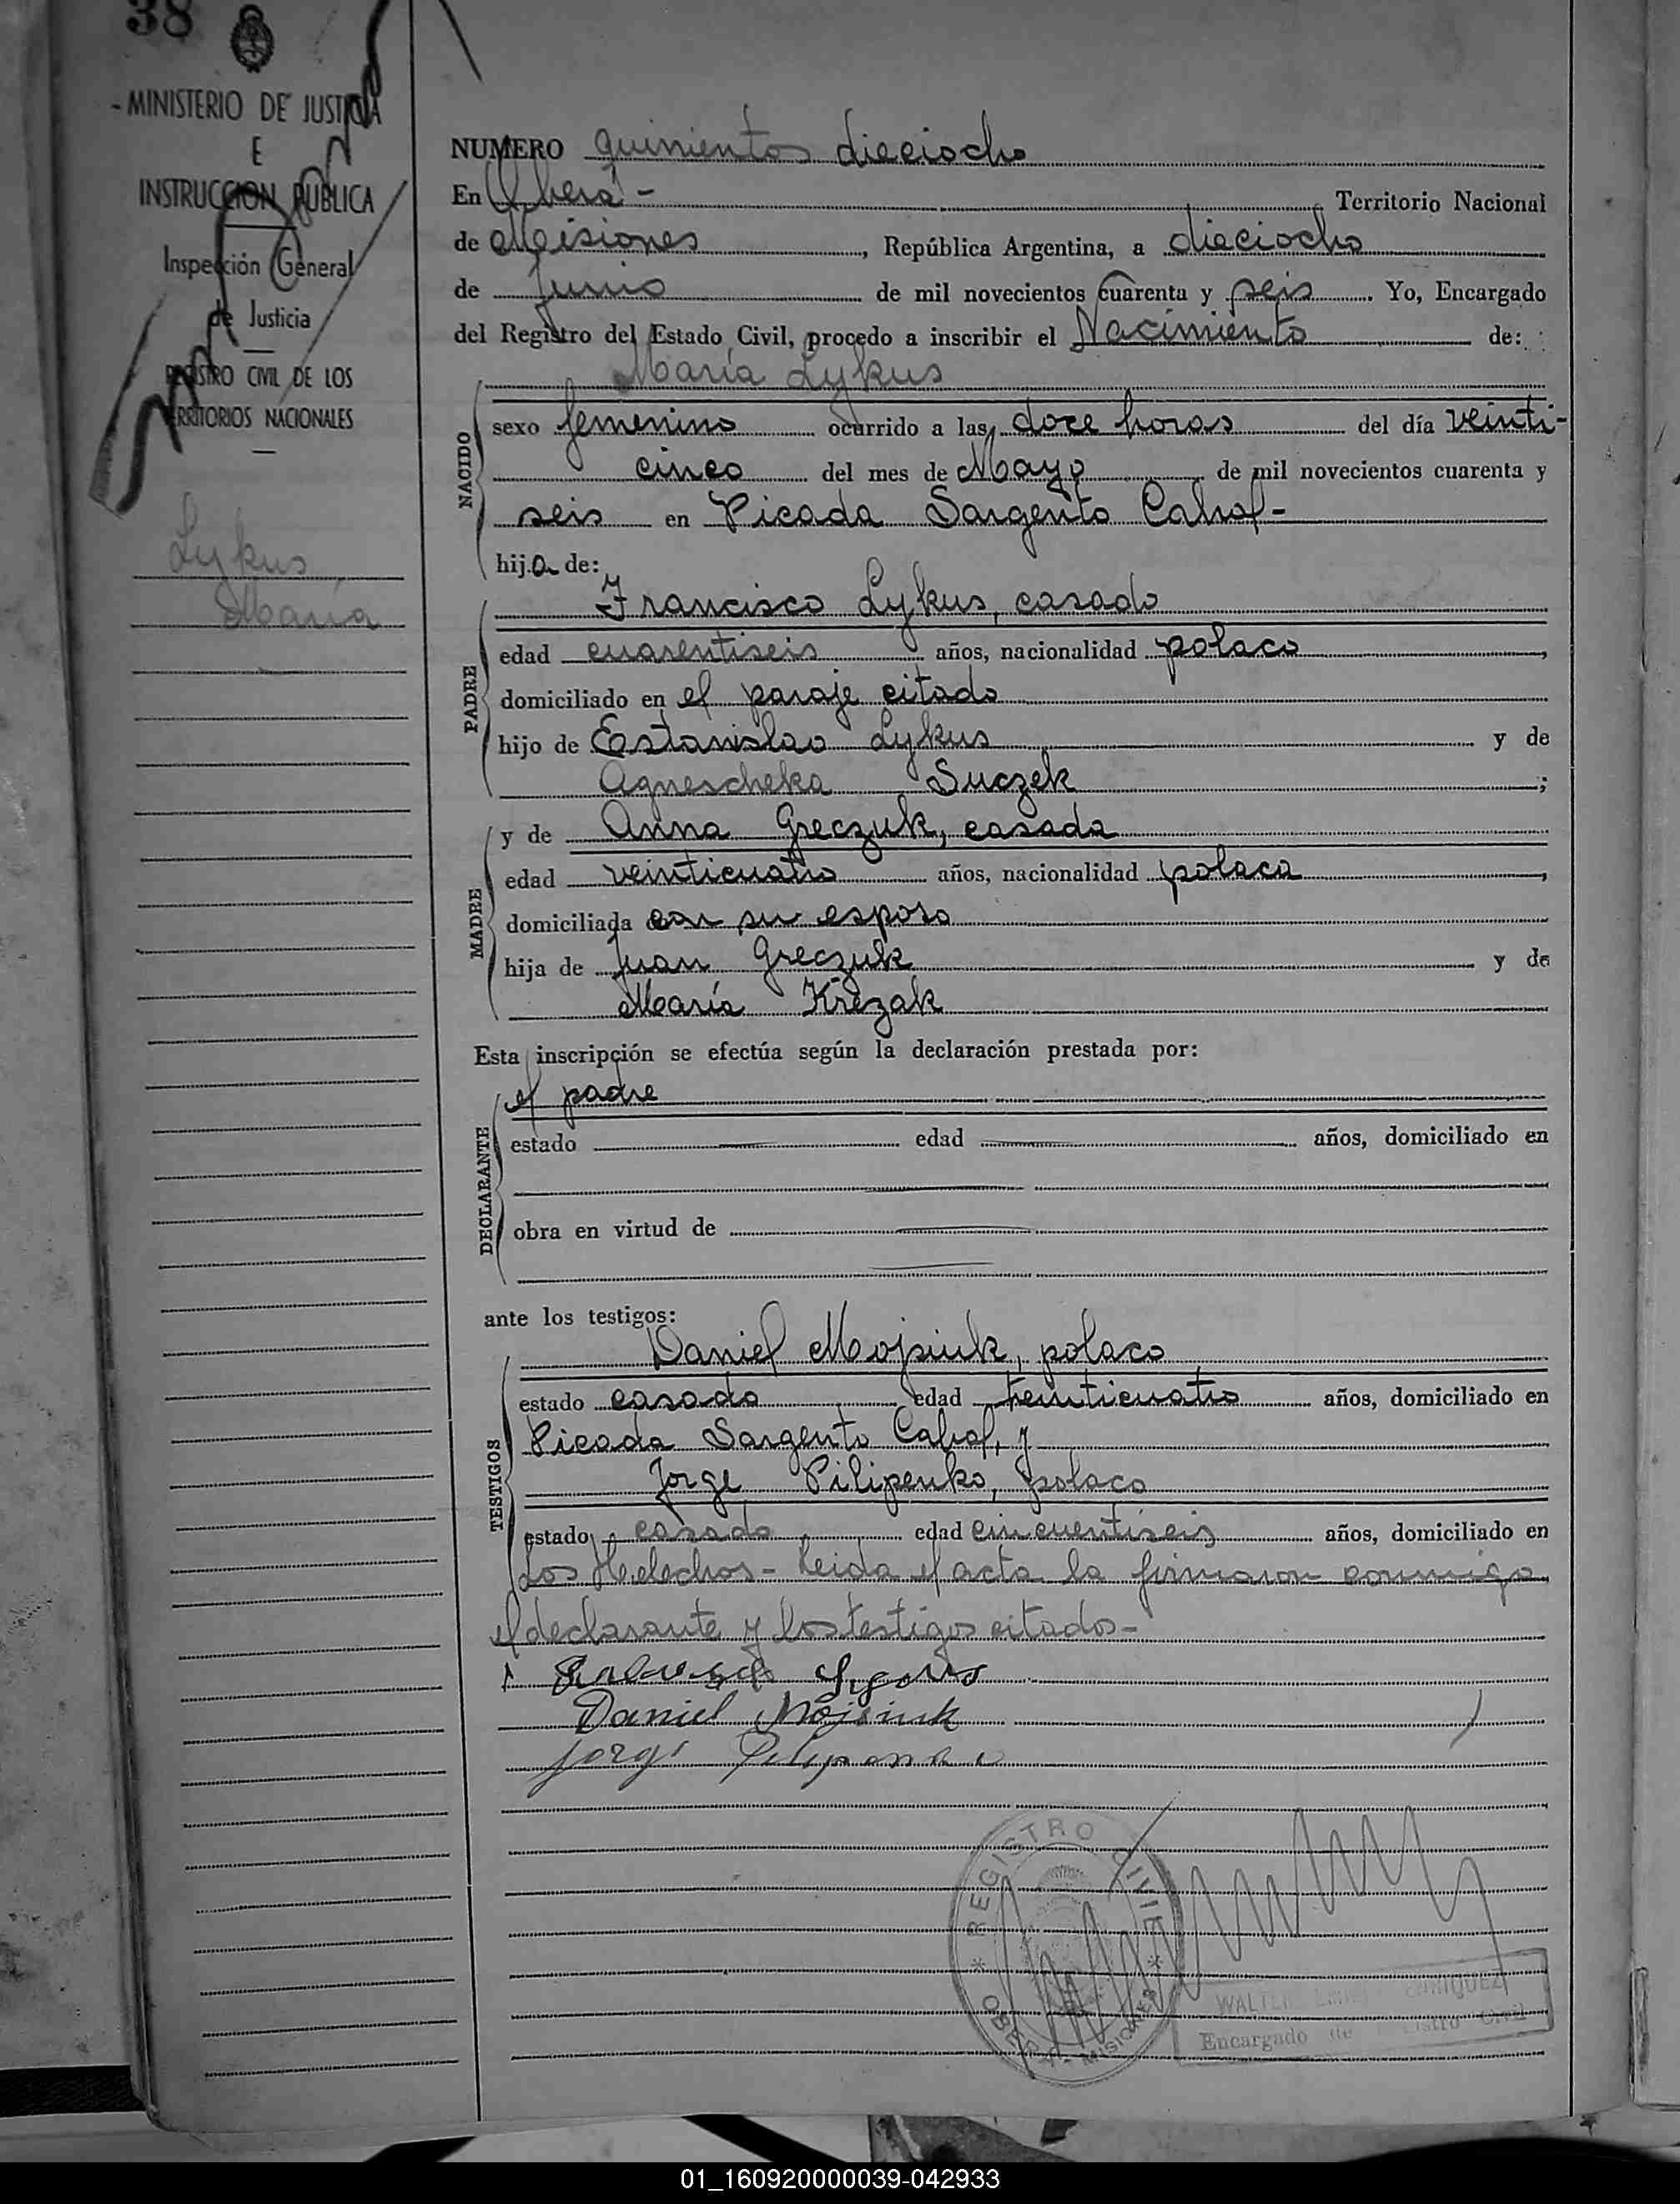 38
- MINISTERIO DE JUSTICIA
E
INSTRUCCION PUBLICA
Inspección General
de Justicia
REGISTRO CIVIL DE LOS
TERRITORIOS NACIONALES
Lykus
María
NUMERO quinientos dieciocho
En Oberá - Territorio Nacional
de Misiones, República Argentina, a dieciocho
de Junio de mil novecientos cuarenta y seis. Yo, Encargado
del Registro del Estado Civil, procedo a inscribir el Nacimiento de:
María Lykus
NACIDO
sexo femenino ocurrido a las doce horas del día veinti-
cinco del mes de Mayo de mil novecientos cuarenta y
seis en Picada Sargento Cabral -
hija de:
PADRE
Francisco Lykus, casado
edad cuarentiseis años, nacionalidad polaco,
domiciliado en el paraje citado
hijo de Estanislao Lykus y de
Agnescheka Suczek;
MADRE
y de Anna Greczuk, casada
edad veinticuatro años, nacionalidad polaca,
domiciliada con su esposo
hija de Juan Greczuk y de
María Krezak
Esta inscripción se efectúa según la declaración prestada por:
DECLARANTE
el padre
estado edad años, domiciliado en
obra en virtud de
ante los testigos:
TESTIGOS
Daniel Mojsiuk, polaco
estado casado edad treinticuatro años, domiciliado en
Picada Sargento Cabral, y
Jorge Pilipenko, polaco
estado casado edad cincuentiseis años, domiciliado en
Los Helechos - Leida el acta la firmaron conmigo
el declarante y los testigos citados -
Daniel Mojsiuk
REGISTRO CIVIL
OBERA - MISIONES
WALTER ENRIQUEZ
Encargado de Registro Civil
01_160920000039-042933